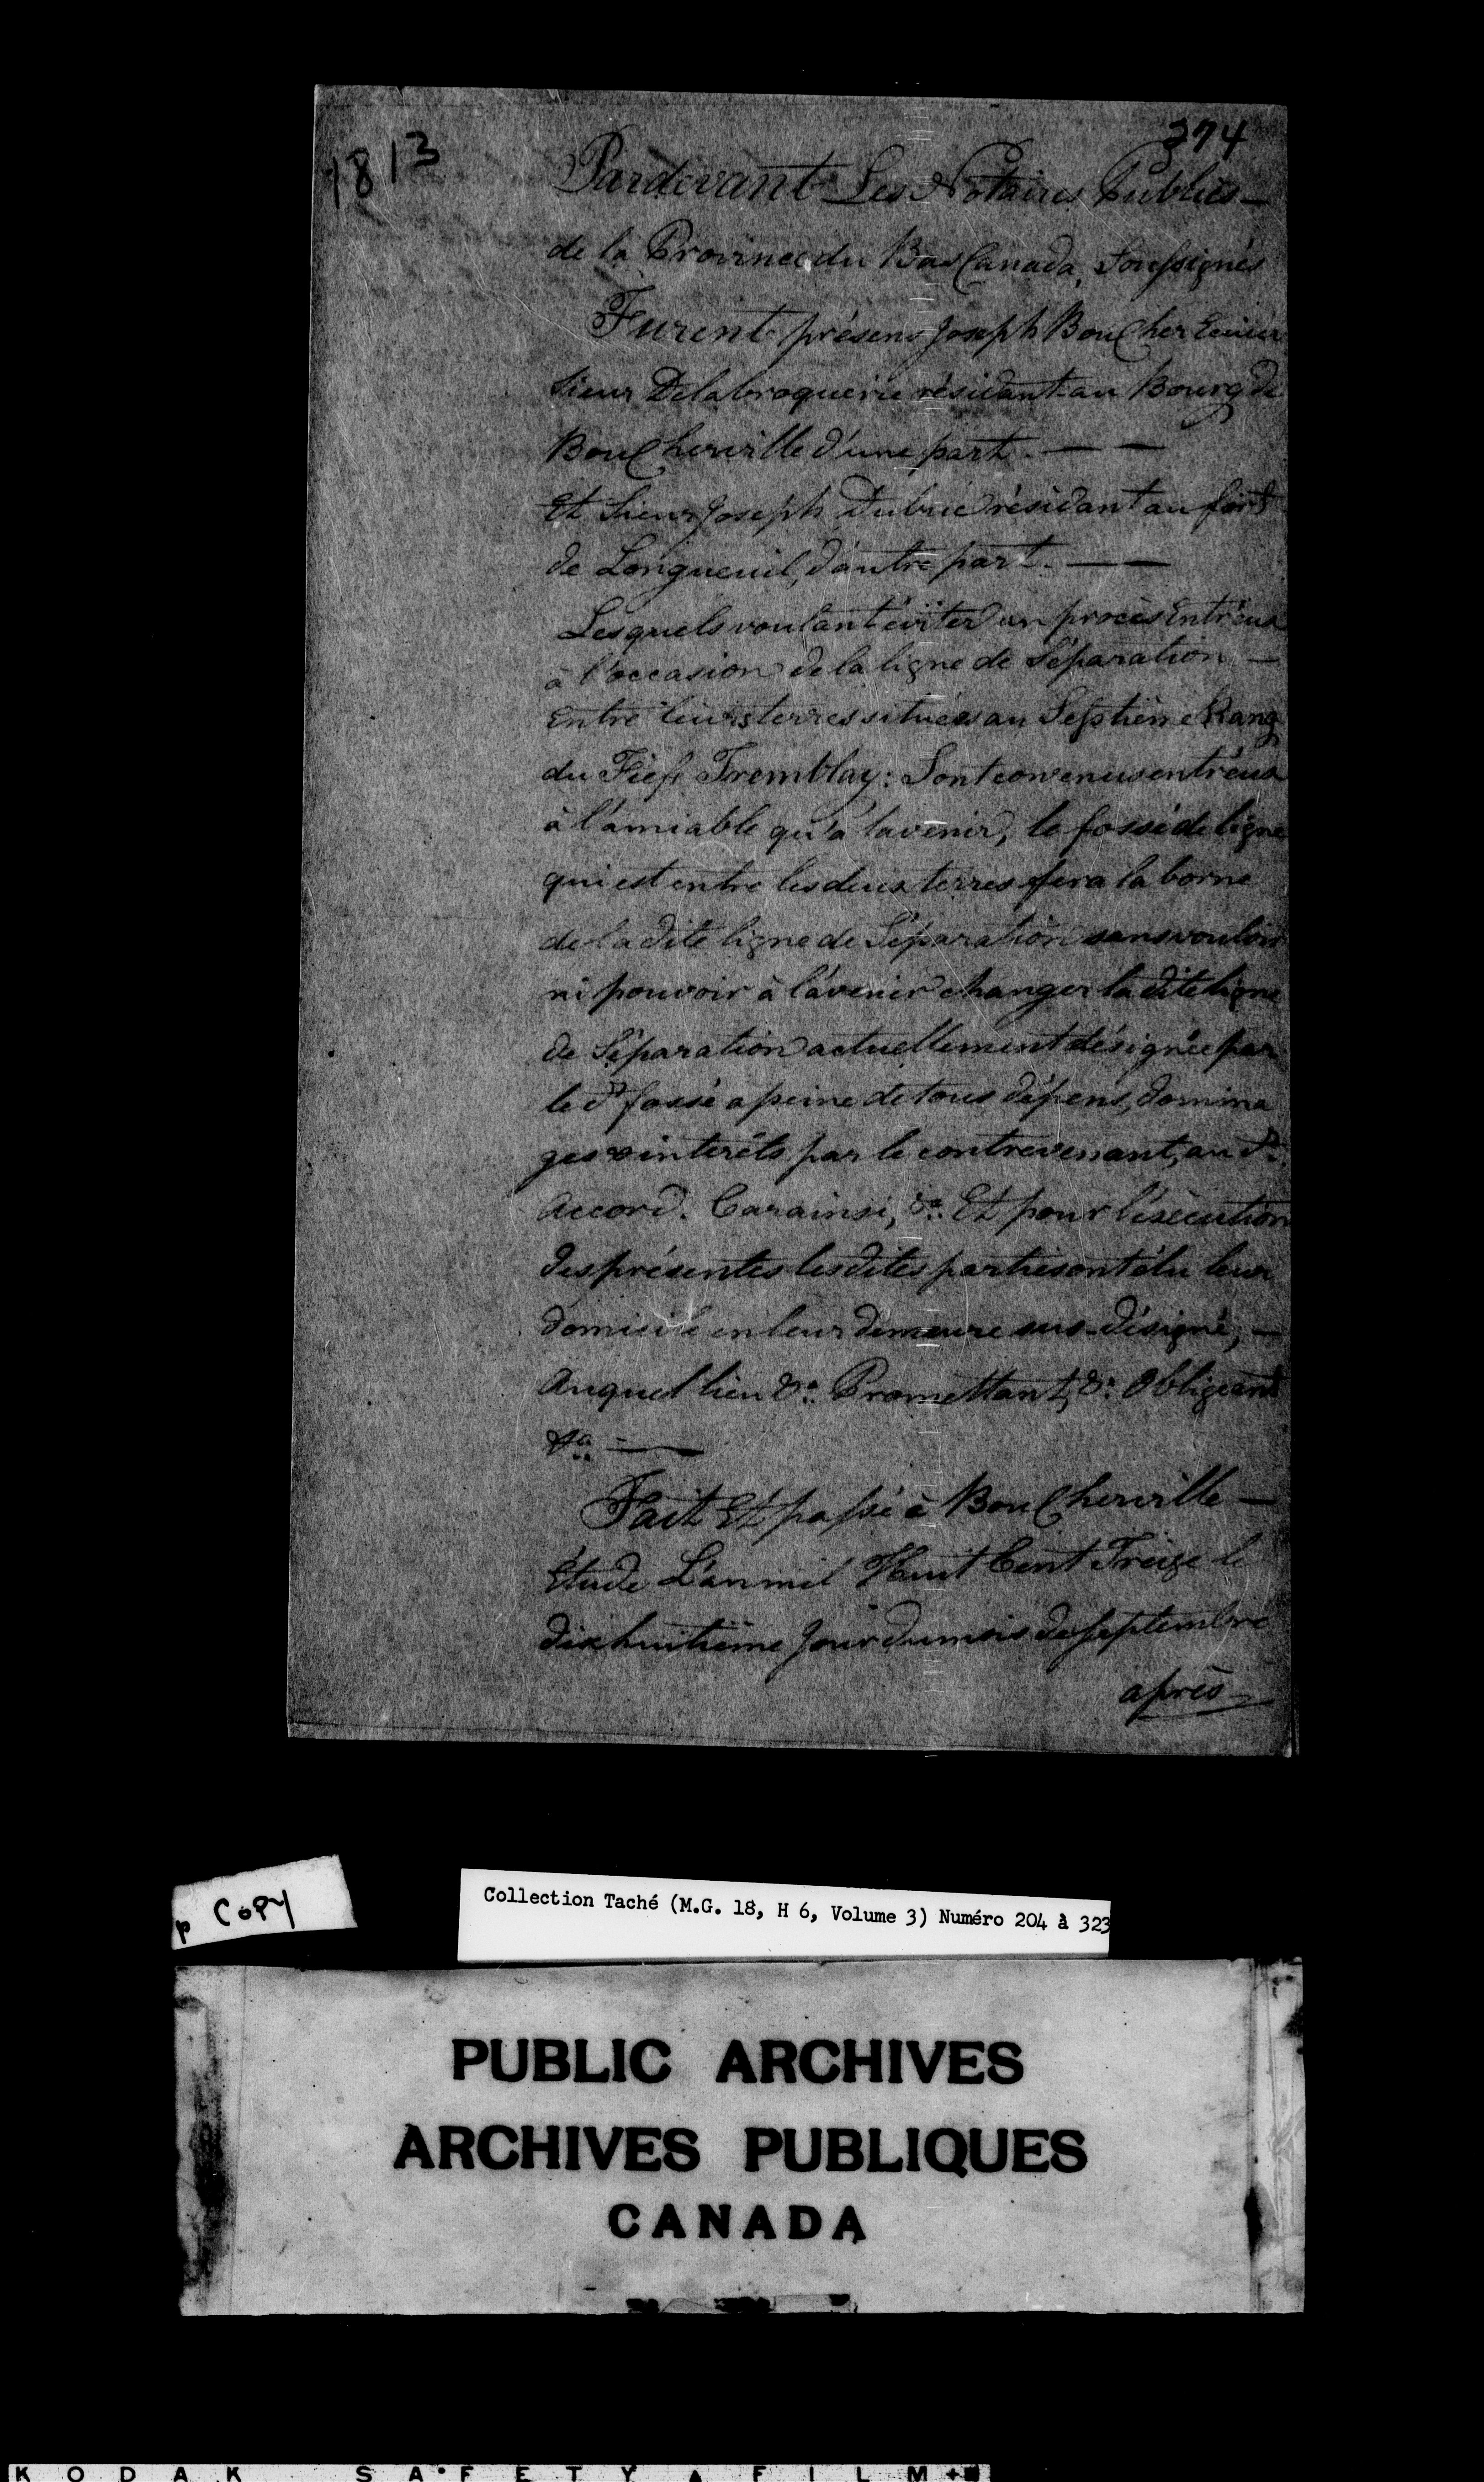 374
1813
Pardevant Les Notaires Publics —
de la Province du Bas Canada, Soussignés
Furent présens Joseph Boucher Ecuier
Sieur Delabroquerie résidant au Bourg de
Boucherville d'une part. — —
Et Sieur Joseph Dubuc résidant au fort
de Longueuil, d'autre part. — —
Lesquels voulant éviter un procès Entr'eux
à l'occasion de la ligne de Séparation —
Entre leurs terres situées au Septième Rang
du Fief Tremblay: Sont convenus entr'eux
à l'amiable qu'a lavenir, le fossé de ligne
qui est entre les deux terres fera la borne
de la dite ligne de Séparation sans vouloir
ni pouvoir à l'avenir changer la dite ligne
de Séparation actuellement désignée par
le dt fossé a peine de tous dépens, domma
ges & interêts par le contrevenant, au dt
accord. Car ainsi, &a. Et pour l'éxécution
des présentes les dites parties ont élu leur
domicile en leur demeure sus-désigné, —
Auquel lieu &a. Promettant, &a. Obligeant
&a. —
Fait Et passé à Boucherville —
Étude L'an mil Huit Cent Treize le
dix huitième Jour du mois de septembre
après
p COPY
Collection Taché (M.G. 18, H 6, Volume 3) Numéro 204 à 323
PUBLIC ARCHIVES
ARCHIVES PUBLIQUES
CANADA
KODAK SAFETY FILM